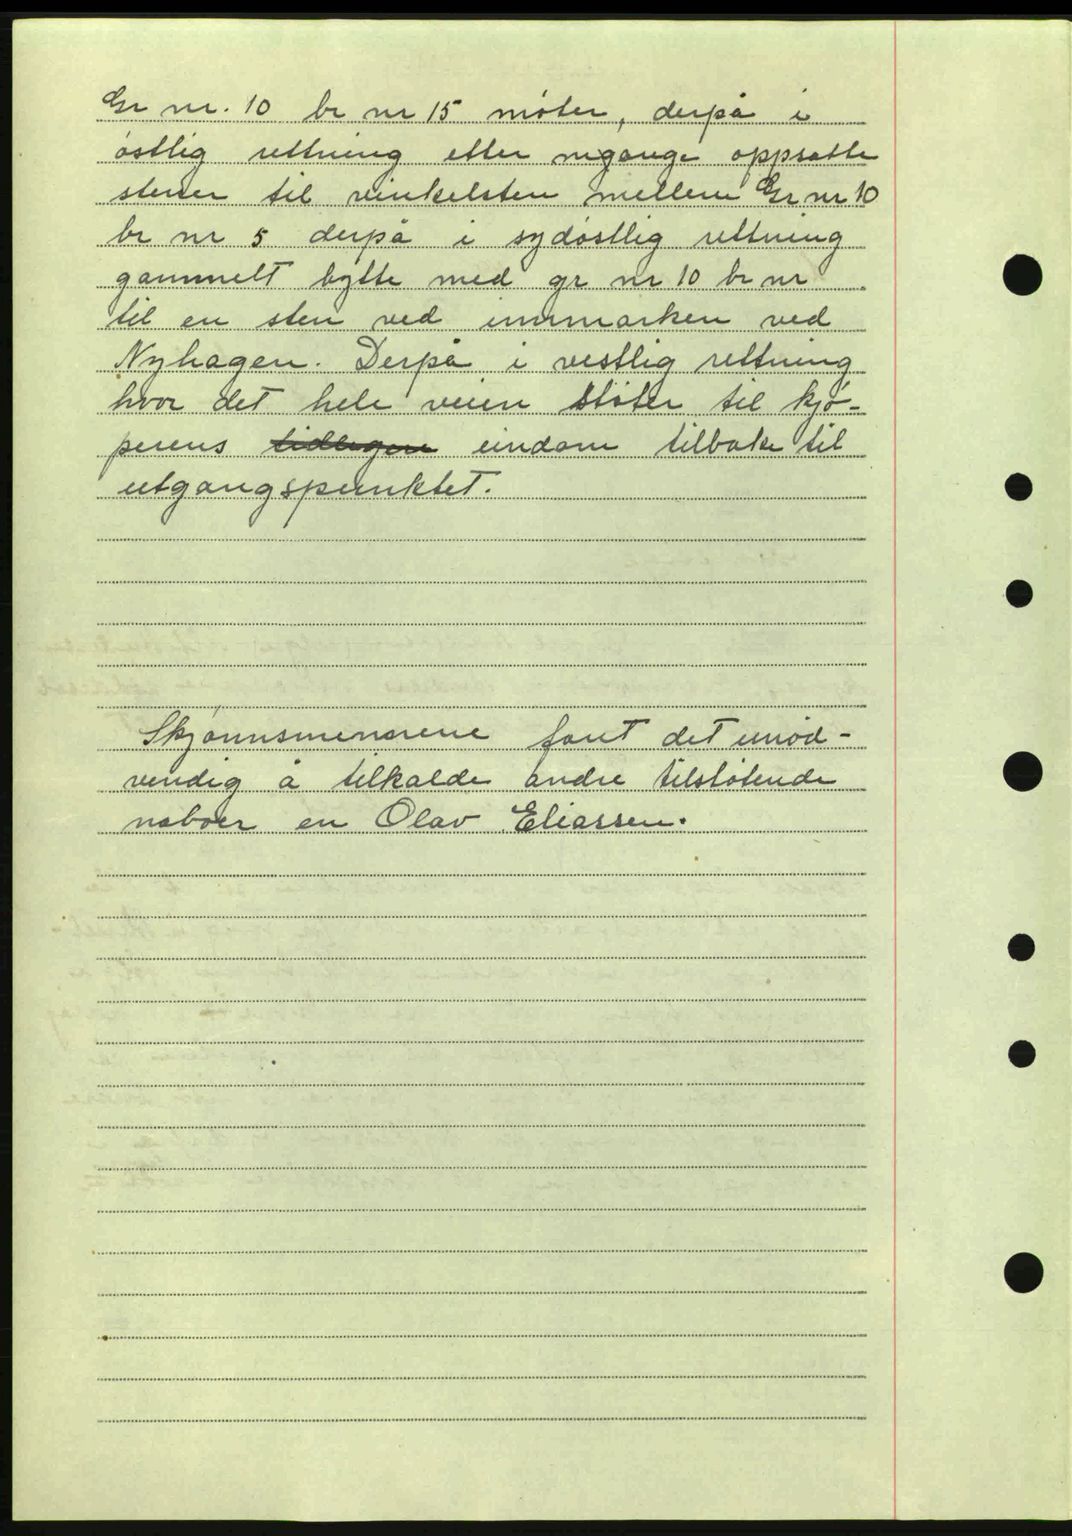 Gr nr. 10 br nr 15 møter, derpå i
østlig rettning etter nugange oppsatte
stener til vinkelsten mellem Gr nr 10
br nr 5 derpå i sydøstlig rettning
gammelt bytte med gr nr 10 br nr
til en sten ved innmarken ved
Nyhagen. Derpå i vestlig rettning
hvor det hele veien støter til kjø-
perens tidligere eindom tilbake til
utgangspunktet.
Skjønnsmennene fant det unød-
vendig å tilkalde andre tilstøtende
naboer en Olav Eliassen.